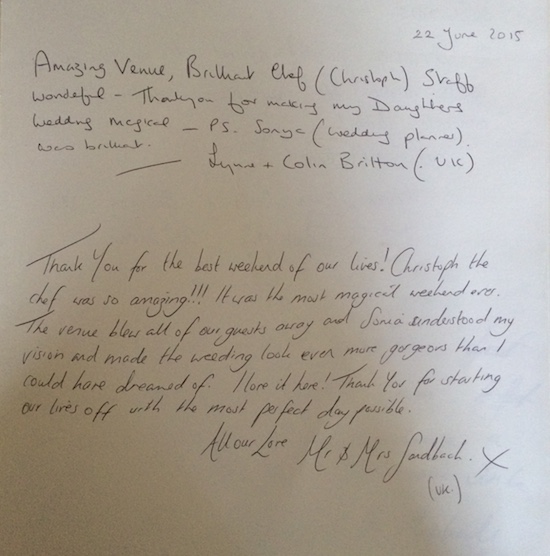 22 June 2015
Amazing Venue, Brilliant Chef (Christoph) Staff
wonderful - Thankyou for making my Daughters
Wedding magical - PS. Sonya (wedding planner)
was brilliant.
Lynne + Colin Britton (UK)
Thank You for the best weekend of our lives! Christoph the
chef was so amazing!!! It was the most magical weekend ever.
The venue blew all of our guests away and Sonia understood my
vision and made the wedding look even more gorgeous than I
could have dreamed of. I love it here! Thank You for starting
our lives off with the most perfect day possible.
All our Love Mr & Mrs Sandbach. X
(UK.)